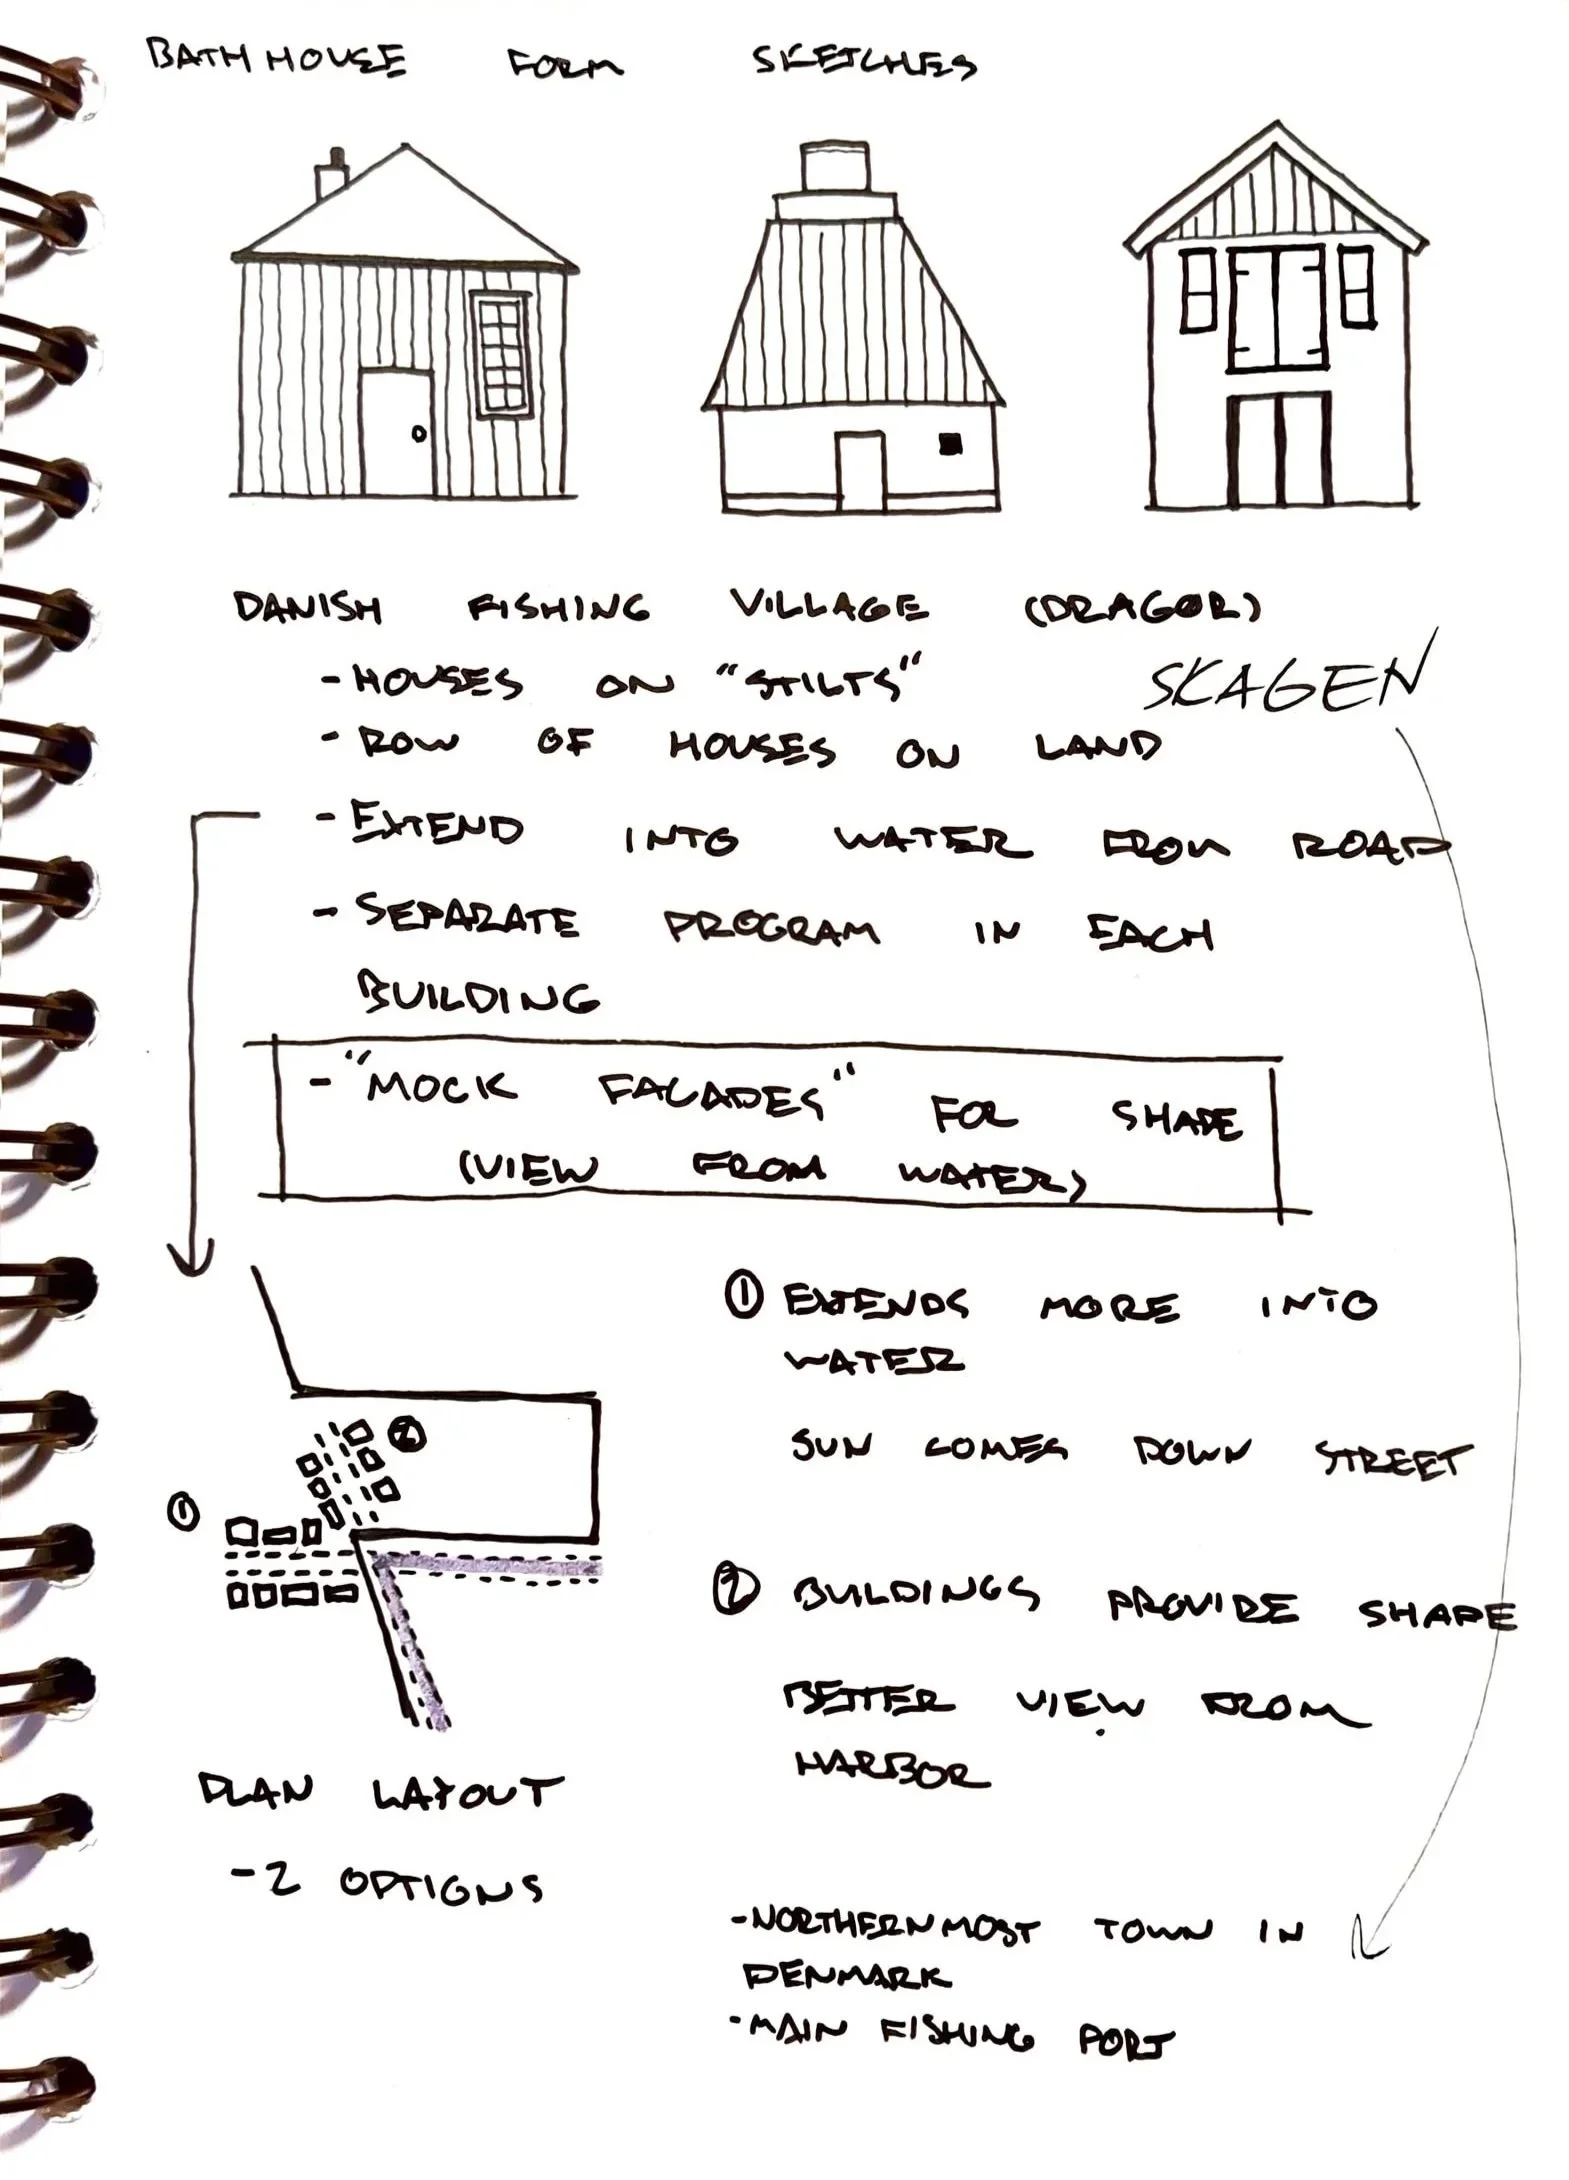 BATH HOUSE FORM SKETCHES
DANISH FISHING VILLAGE (DRAGØR)
SKAGEN
- HOUSES ON "STILTS"
- ROW OF HOUSES ON LAND
- EXTEND INTO WATER FROM ROAD
- SEPARATE PROGRAM IN EACH
BUILDING
- "MOCK FACADES" FOR SHAPE
(VIEW FROM WATER)
① EXTENDS MORE INTO
WATER
SUN COMES DOWN STREET
②
①
② BUILDINGS PROVIDE SHAPE
BETTER VIEW FROM
HARBOR
PLAN LAYOUT
- 2 OPTIONS
- NORTHERNMOST TOWN IN
DENMARK
- MAIN FISHING PORT